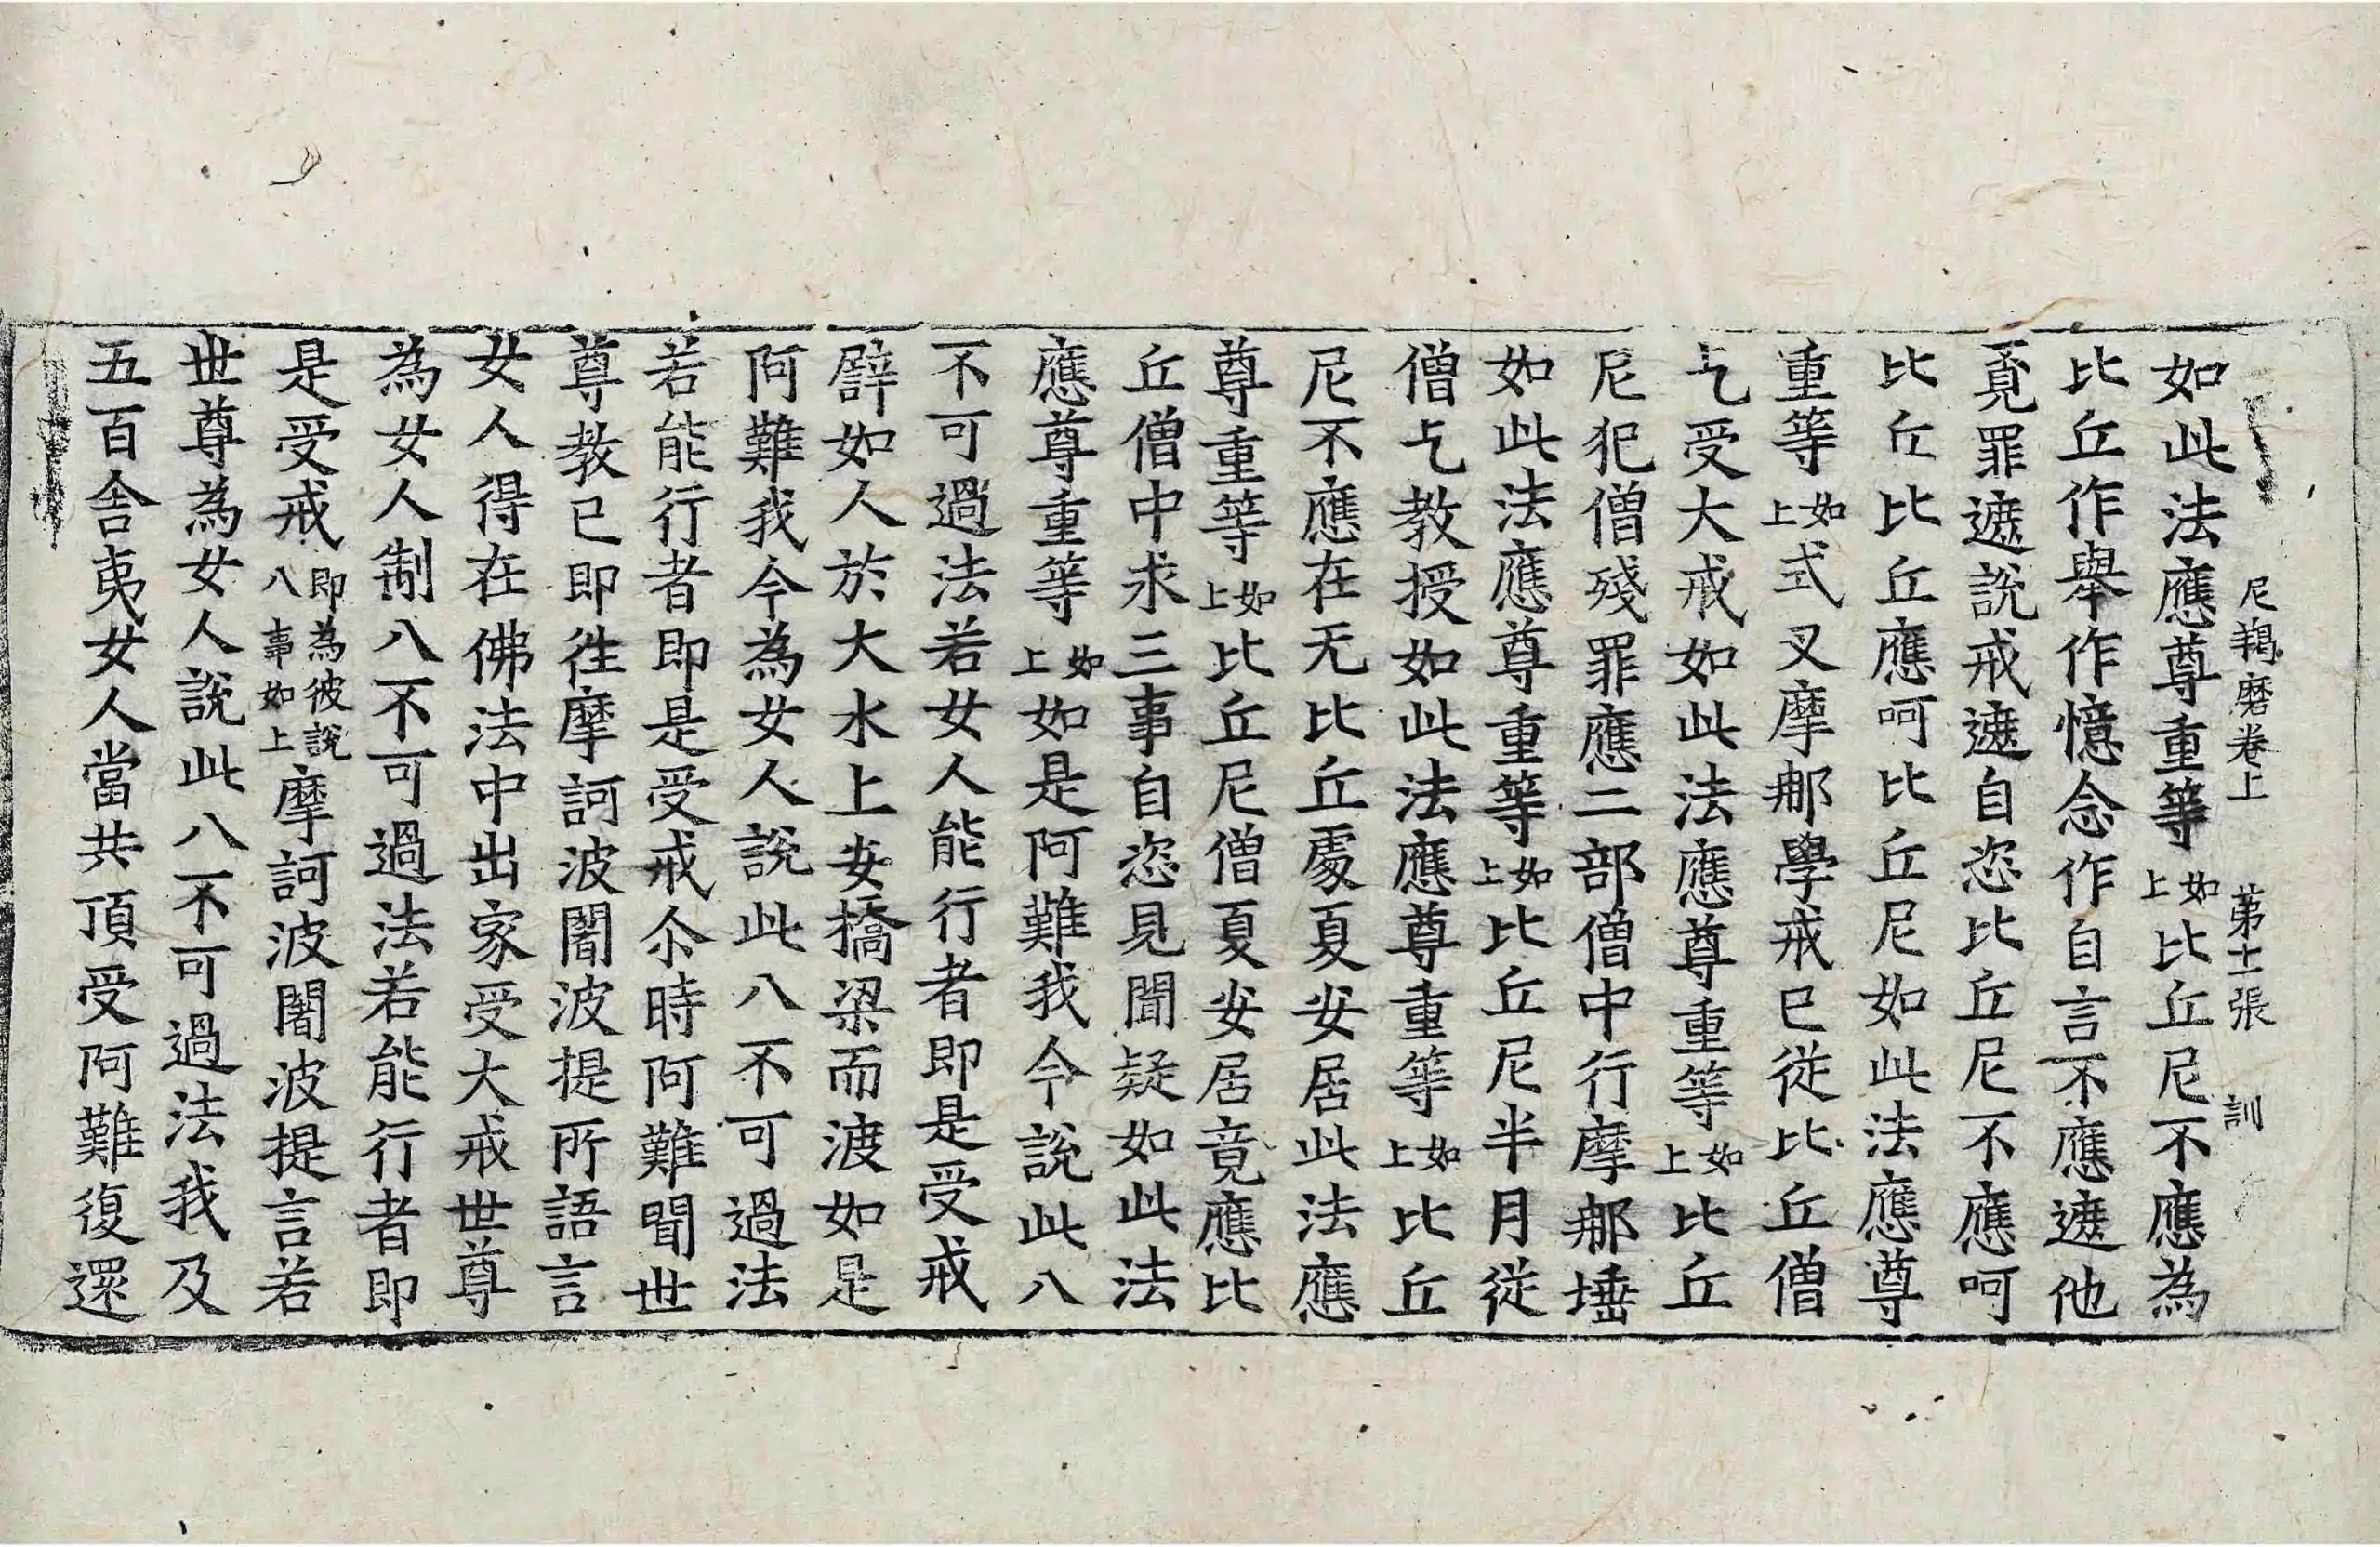 尼羯磨卷上 第十一張 訓
如此法應尊重等如上比丘尼不應為
比丘作舉作憶念作自言不應遮他
覓罪遮說戒遮自恣比丘尼不應呵
比丘比丘應呵比丘尼如此法應尊
重等如上式叉摩那學戒已從比丘僧
乞受大戒如此法應尊重等如上比丘
尼犯僧殘罪應二部僧中行摩那埵
如此法應尊重等如上比丘尼半月從
僧乞教授如此法應尊重等如上比丘
尼不應在无比丘處夏安居此法應
尊重等如上比丘尼僧夏安居竟應比
丘僧中求三事自恣見聞疑如此法
應尊重等如上如是阿難我今說此八
不可過法若女人能行者即是受戒
譬如人於大水上安橋梁而渡如是
阿難我今為女人說此八不可過法
若能行者即是受戒尒時阿難聞世
尊教已即往摩訶波闍波提所語言
女人得在佛法中出家受大戒世尊
為女人制八不可過法若能行者即
是受戒即為彼說八事如上摩訶波闍波提言若
世尊為女人說此八不可過法我及
五百舍夷女人當共頂受阿難復還